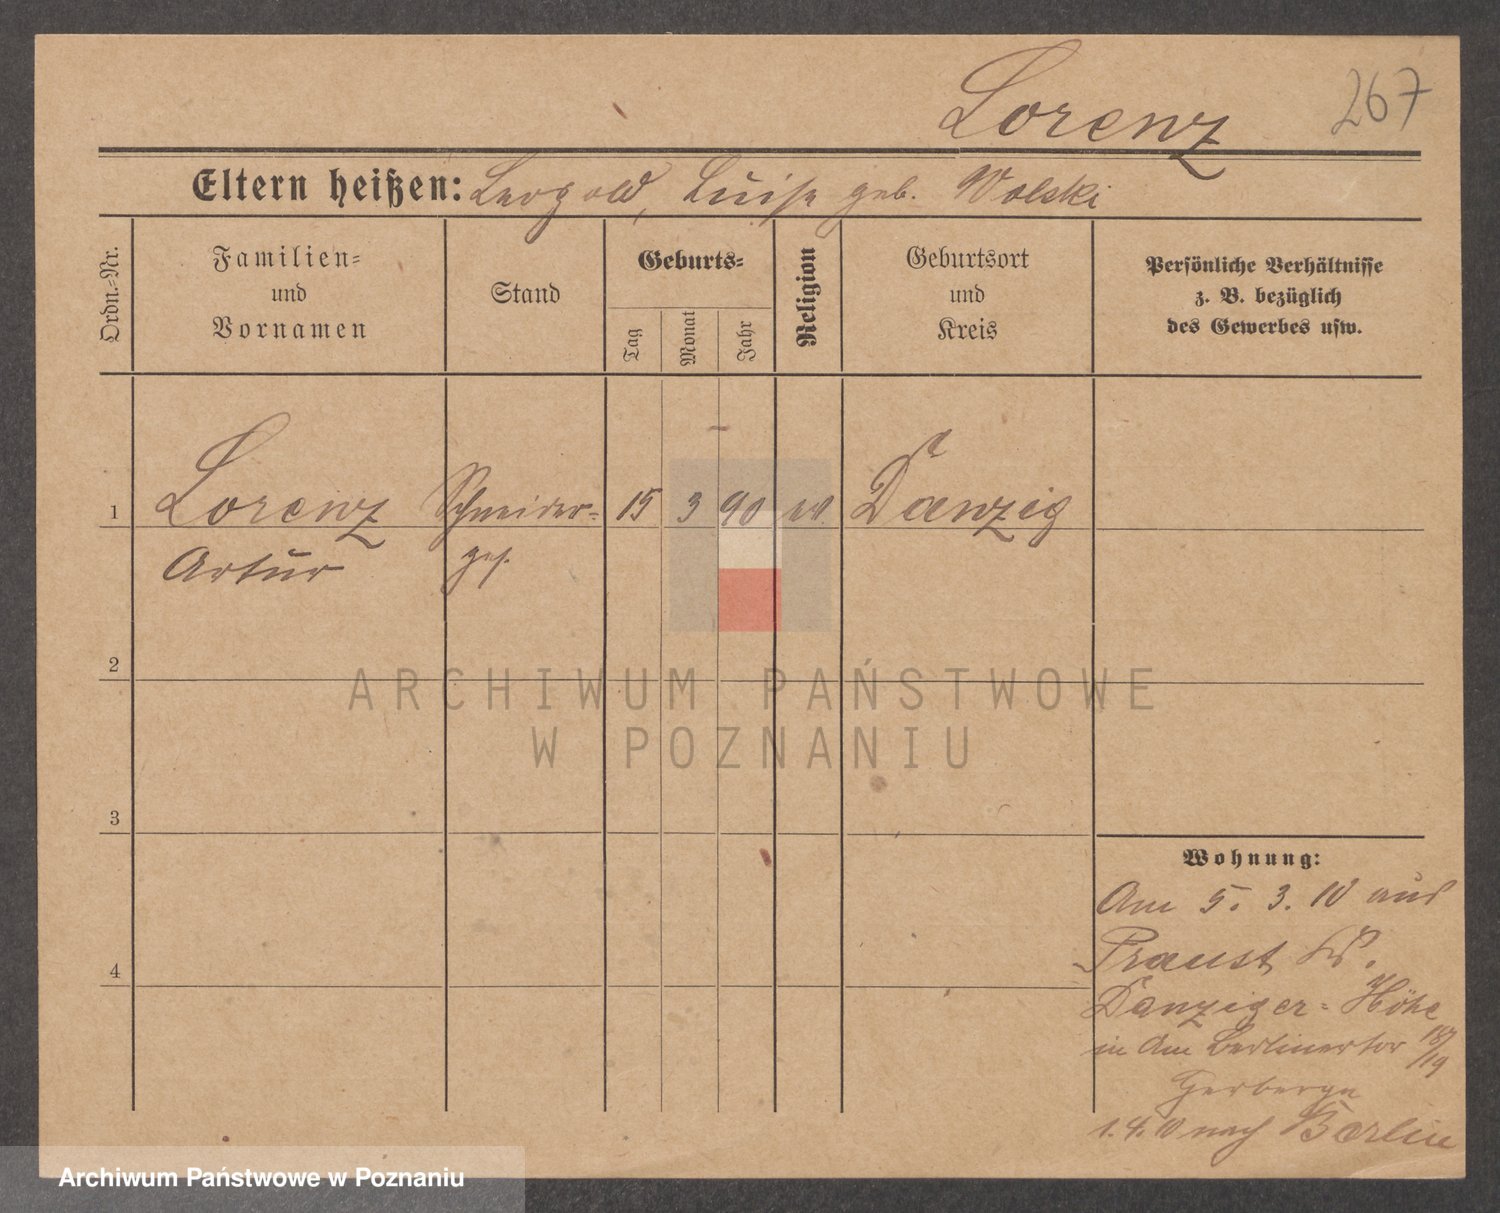 Lorenz 267
Eltern heißen: Leopold, Luise geb. Wolski
Ordn.-Nr.
Familien-
und
Vornamen
Stand
Geburts-
Tag
Monat
Jahr
Religion
Geburtsort
und
Kreis
Persönliche Verhältnisse
z. B. bezüglich
des Gewerbes usw.
1 Lorenz Schneider- 15 3 90 ev. Danzig
Artur ges.
2
3
4
ARCHIWUM PAŃSTWOWE
W POZNANIU
Wohnung:
Am 5. 3. 10 aus
Praust Kr.
Danziger-Höhe
in Am Berlinertor 18/19
Herberge
1.4.10 nach Berlin
Archiwum Państwowe w Poznaniu